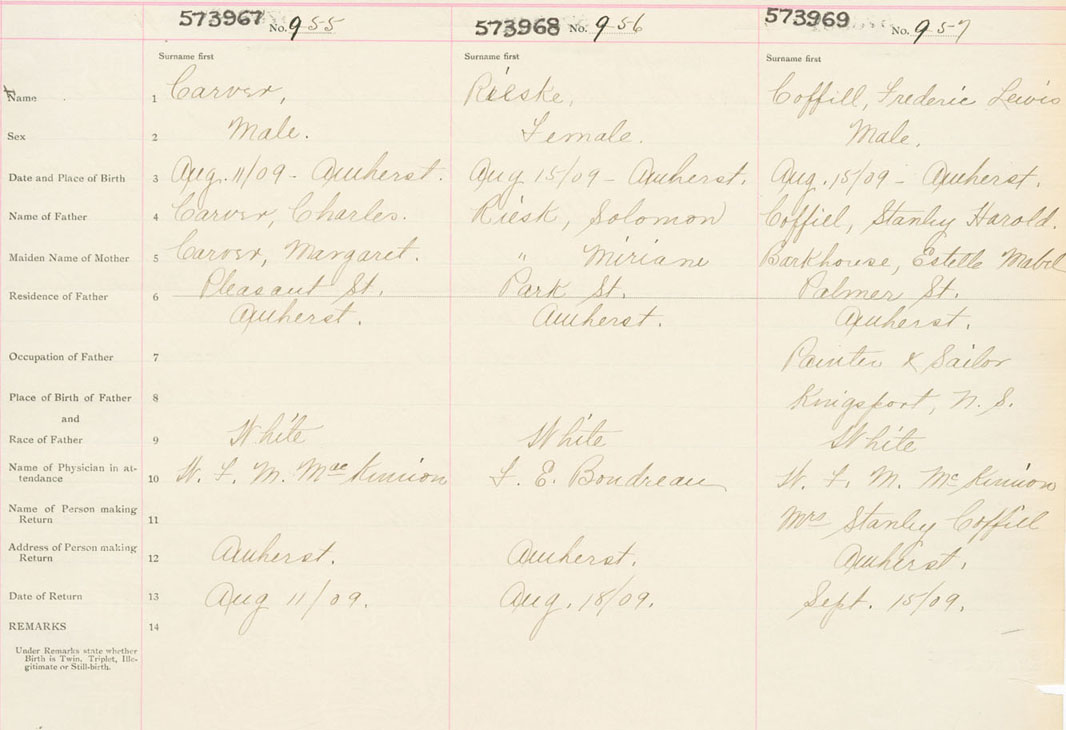 573967 No. 955 573968 No. 956 573969 No. 957
Surname first Surname first Surname first
Name 1 Carver, Rieske, Coffill, Frederic Lewis
Sex 2 Male. Female. Male.
Date and Place of Birth 3 Aug. 11/09 - Amherst. Aug 15/09 - Amherst. Aug. 15/09 - Amherst.
Name of Father 4 Carver, Charles. Riesk, Solomon Coffill, Stanley Harold.
Maiden Name of Mother 5 Carver, Margaret. " Miriane Barkhouse, Estella Mabel
Residence of Father 6 Pleasant St. Park St. Palmer St.
Amherst. Amherst. Amherst.
Occupation of Father 7 Painter & Sailor
Place of Birth of Father 8 Kingsport, N. S.
and
Race of Father 9 White White White
Name of Physician in at-
tendance 10 W. F. M. MacKinnon F. E. Boudreau W. F. M. McKinnon
Name of Person making
Return 11 Mrs Stanley Coffill
Address of Person making
Return 12 Amherst. Amherst. Amherst.
Date of Return 13 Aug 11/09. Aug. 18/09. Sept. 15/09.
REMARKS 14
Under Remarks state whether
Birth is Twin. Triplet, Ille-
gitimate or Still-birth.